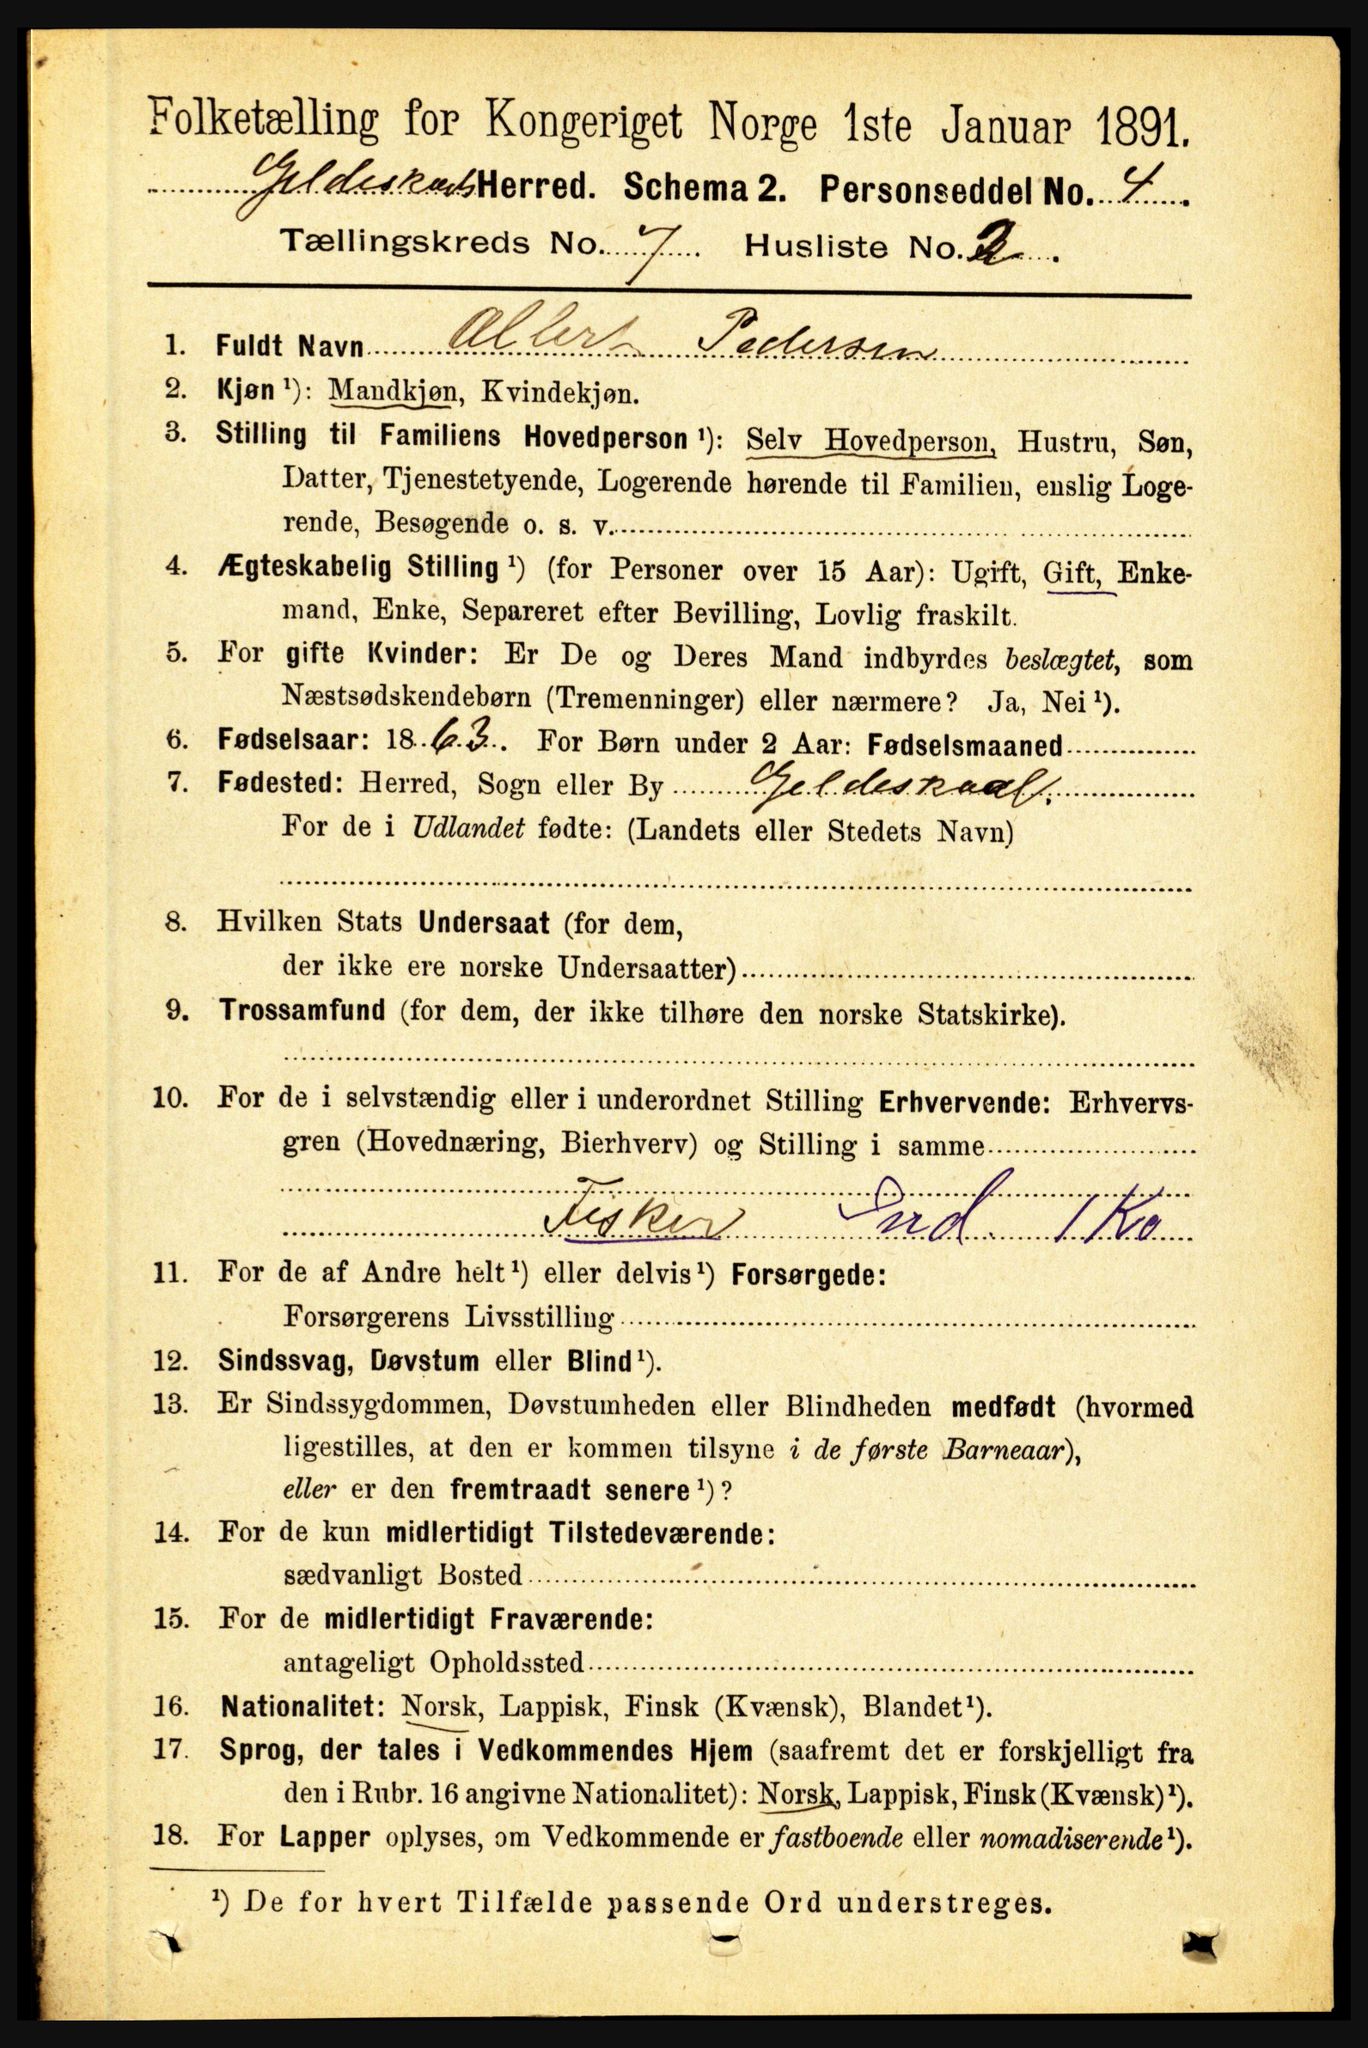 Folketælling for Kongeriget Norge 1ste Januar 1891.
Gildeskaals Herred. Schema 2. Personseddel No. 4.
Tællingskreds No. 7. Husliste No. 2.
1. Fuldt Navn Albert Pedersen
2. Kjøn ¹): Mandkjøn, Kvindekjøn.
3. Stilling til Familiens Hovedperson ¹): Selv Hovedperson, Hustru, Søn,
Datter, Tjenestetyende, Logerende hørende til Familien, enslig Loge-
rende, Besøgende o. s. v.
4. Ægteskabelig Stilling ¹) (for Personer over 15 Aar): Ugift, Gift, Enke-
mand, Enke, Separeret efter Bevilling, Lovlig fraskilt.
5. For gifte Kvinder: Er De og Deres Mand indbyrdes beslægtet, som
Næstsødskendebørn (Tremenninger) eller nærmere? Ja, Nei ¹).
6. Fødselsaar: 1863. For Børn under 2 Aar: Fødselsmaaned
7. Fødested: Herred, Sogn eller By Gildeskaal.
For de i Udlandet fødte: (Landets eller Stedets Navn)
8. Hvilken Stats Undersaat (for dem,
der ikke ere norske Undersaatter)
9. Trossamfund (for dem, der ikke tilhøre den norske Statskirke).
10. For de i selvstændig eller i underordnet Stilling Erhvervende: Erhvervs-
gren (Hovednæring, Bierhverv) og Stilling i samme
Fisker Ind. 1 Ko
11. For de af Andre helt ¹) eller delvis ¹) Forsørgede:
Forsørgerens Livsstilling
12. Sindssvag, Døvstum eller Blind ¹).
13. Er Sindssygdommen, Døvstumheden eller Blindheden medfødt (hvormed
ligestilles, at den er kommen tilsyne i de første Barneaar),
eller er den fremtraadt senere ¹)?
14. For de kun midlertidigt Tilstedeværende:
sædvanligt Bosted
15. For de midlertidigt Fraværende:
antageligt Opholdssted
16. Nationalitet: Norsk, Lappisk, Finsk (Kvænsk), Blandet ¹).
17. Sprog, der tales i Vedkommendes Hjem (saafremt det er forskjelligt fra
den i Rubr. 16 angivne Nationalitet): Norsk, Lappisk, Finsk (Kvænsk) ¹).
18. For Lapper oplyses, om Vedkommende er fastboende eller nomadiserende ¹).
¹) De for hvert Tilfælde passende Ord understreges.